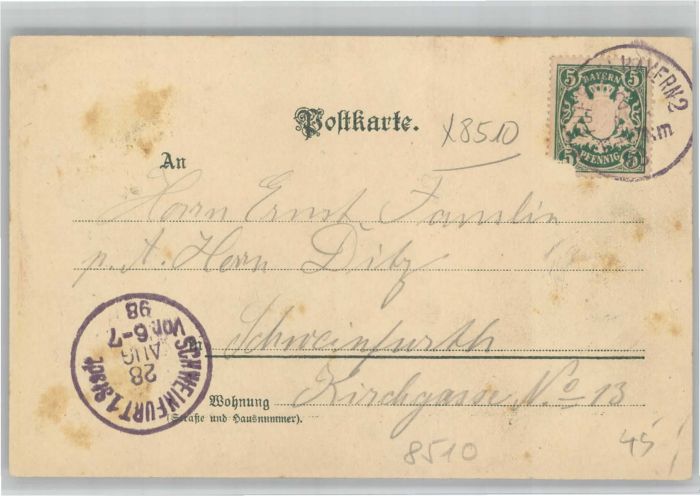 5 BAYERN 5
5 PFENNIG 5
BAYERN 2
Postkarte.
X8510
An
Herrn Ernst Familie
p. A. Herrn Ditz
in Schweinfurth
Kirchgasse No 13
Wohnung
(Straße und Hausnummer).
SCHWEINFURT 1 Stadt
28
AUG
Vor. 6-7
98
8510
45